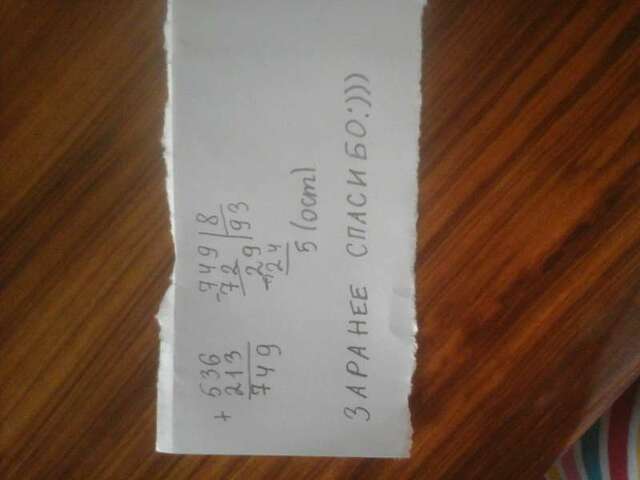 + 536
213
749
- 749 | 8
72 | 93
- 29
24
5 (ост)
ЗАРАНЕЕ СПАСИБО:)))